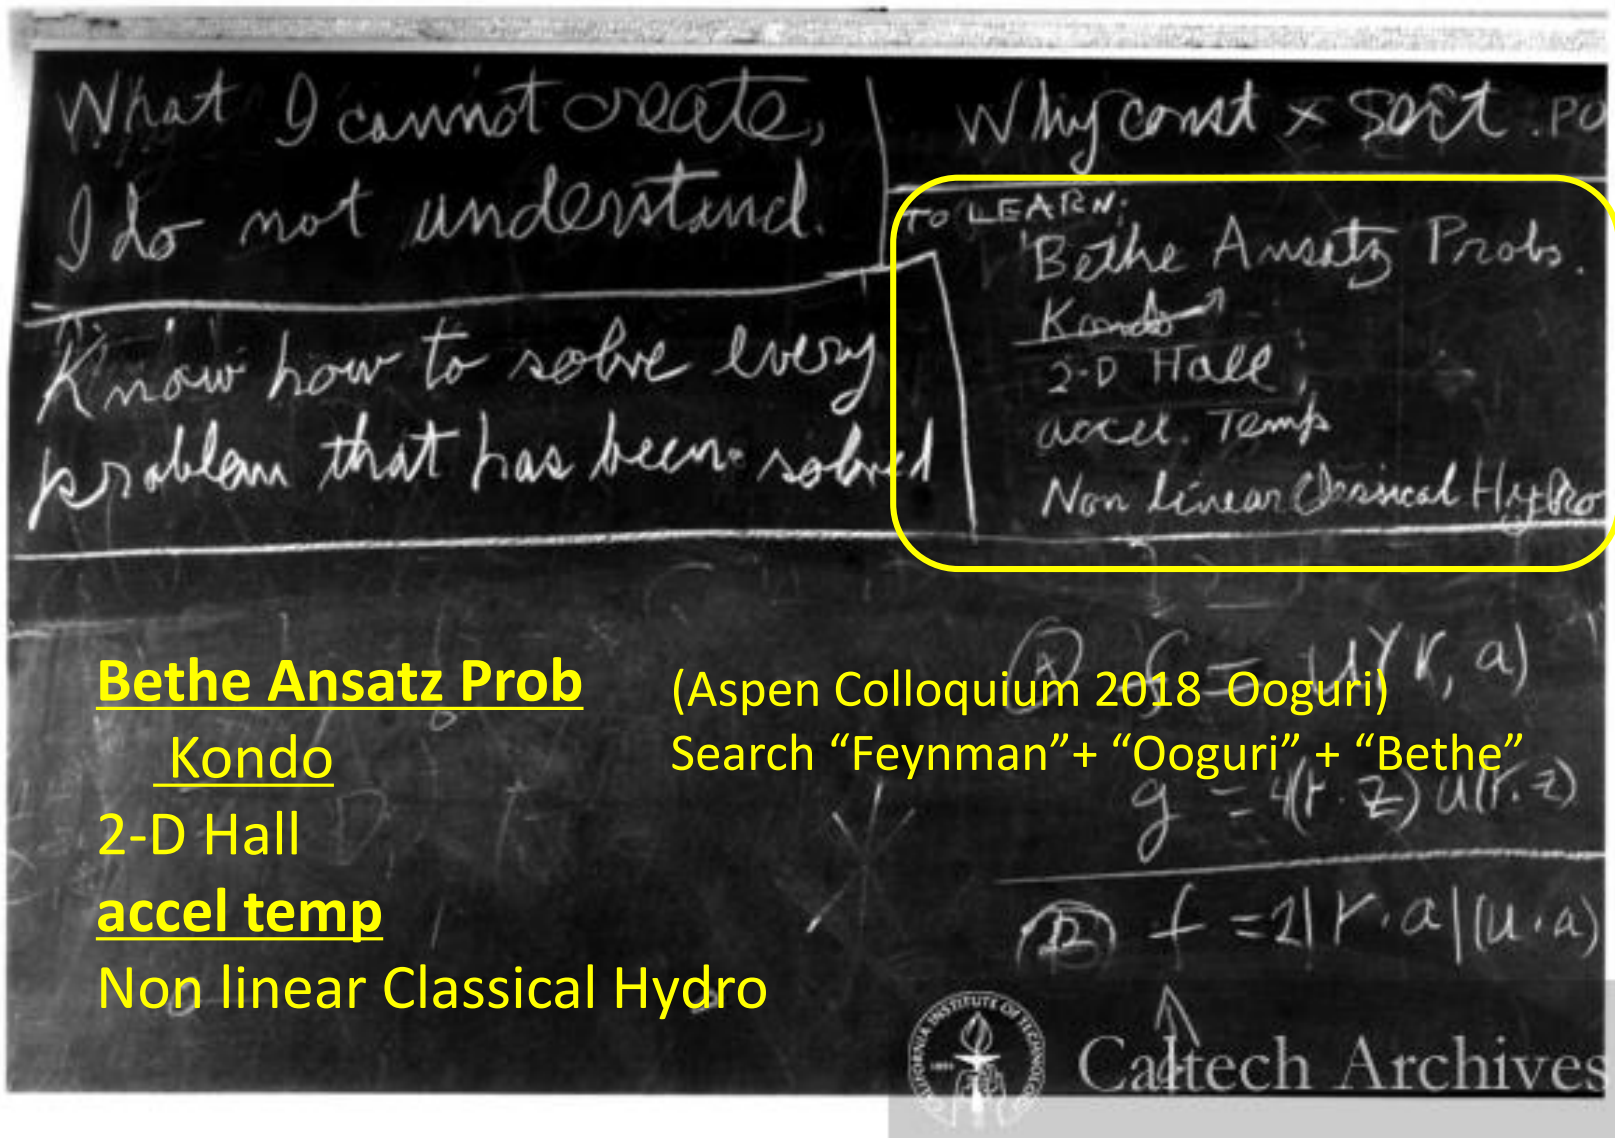 What I cannot create,
I do not understand.
Know how to solve every
problem that has been solved
Why const × sort . PO
TO LEARN:
Bethe Ansatz Probs.
Kondo
2-D Hall
accel. Temp
Non linear Classical Hydro
Bethe Ansatz Prob
Kondo
2-D Hall
accel temp
Non linear Classical Hydro
(Aspen Colloquium 2018 Ooguri)
Search “Feynman”+ “Ooguri” + “Bethe”
f = u(r, a)
g = 4(r·z) u(r.z)
f = 2|r·a|(u·a)
CALIFORNIA INSTITUTE OF TECHNOLOGY
Caltech Archives